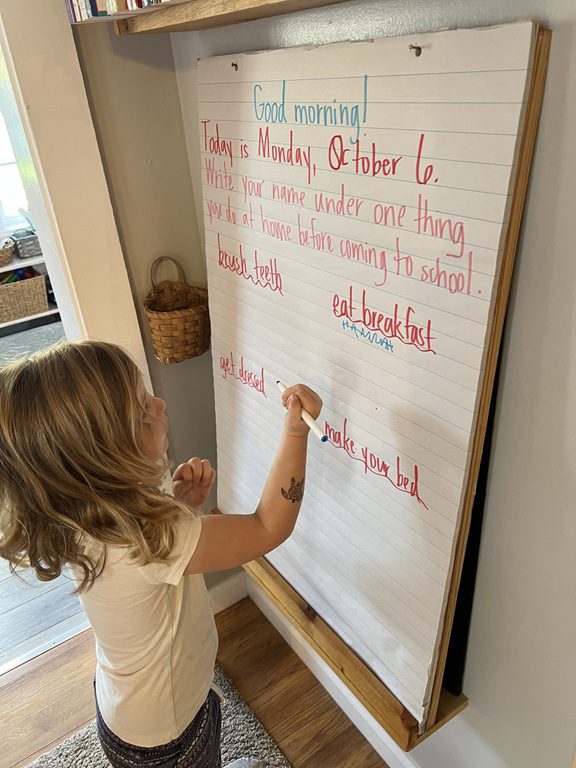 Good morning!
Today is Monday, October 6.
Write your name under one thing
you do at home before coming to school.
brush teeth
eat breakfast
HANNAH
get dressed
make your bed